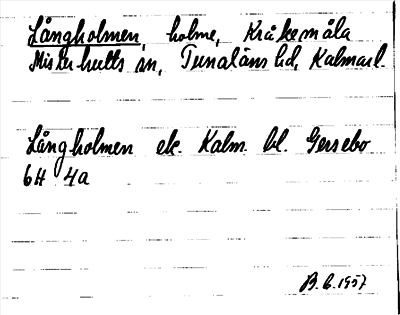 Långholmen, holme, Kråkemåla
Misterhults sn, Tunaläns hd, Kalmar l.
Långholmen ek. Kalm. bl. Gersebo
6H 4a
B. C. 1957